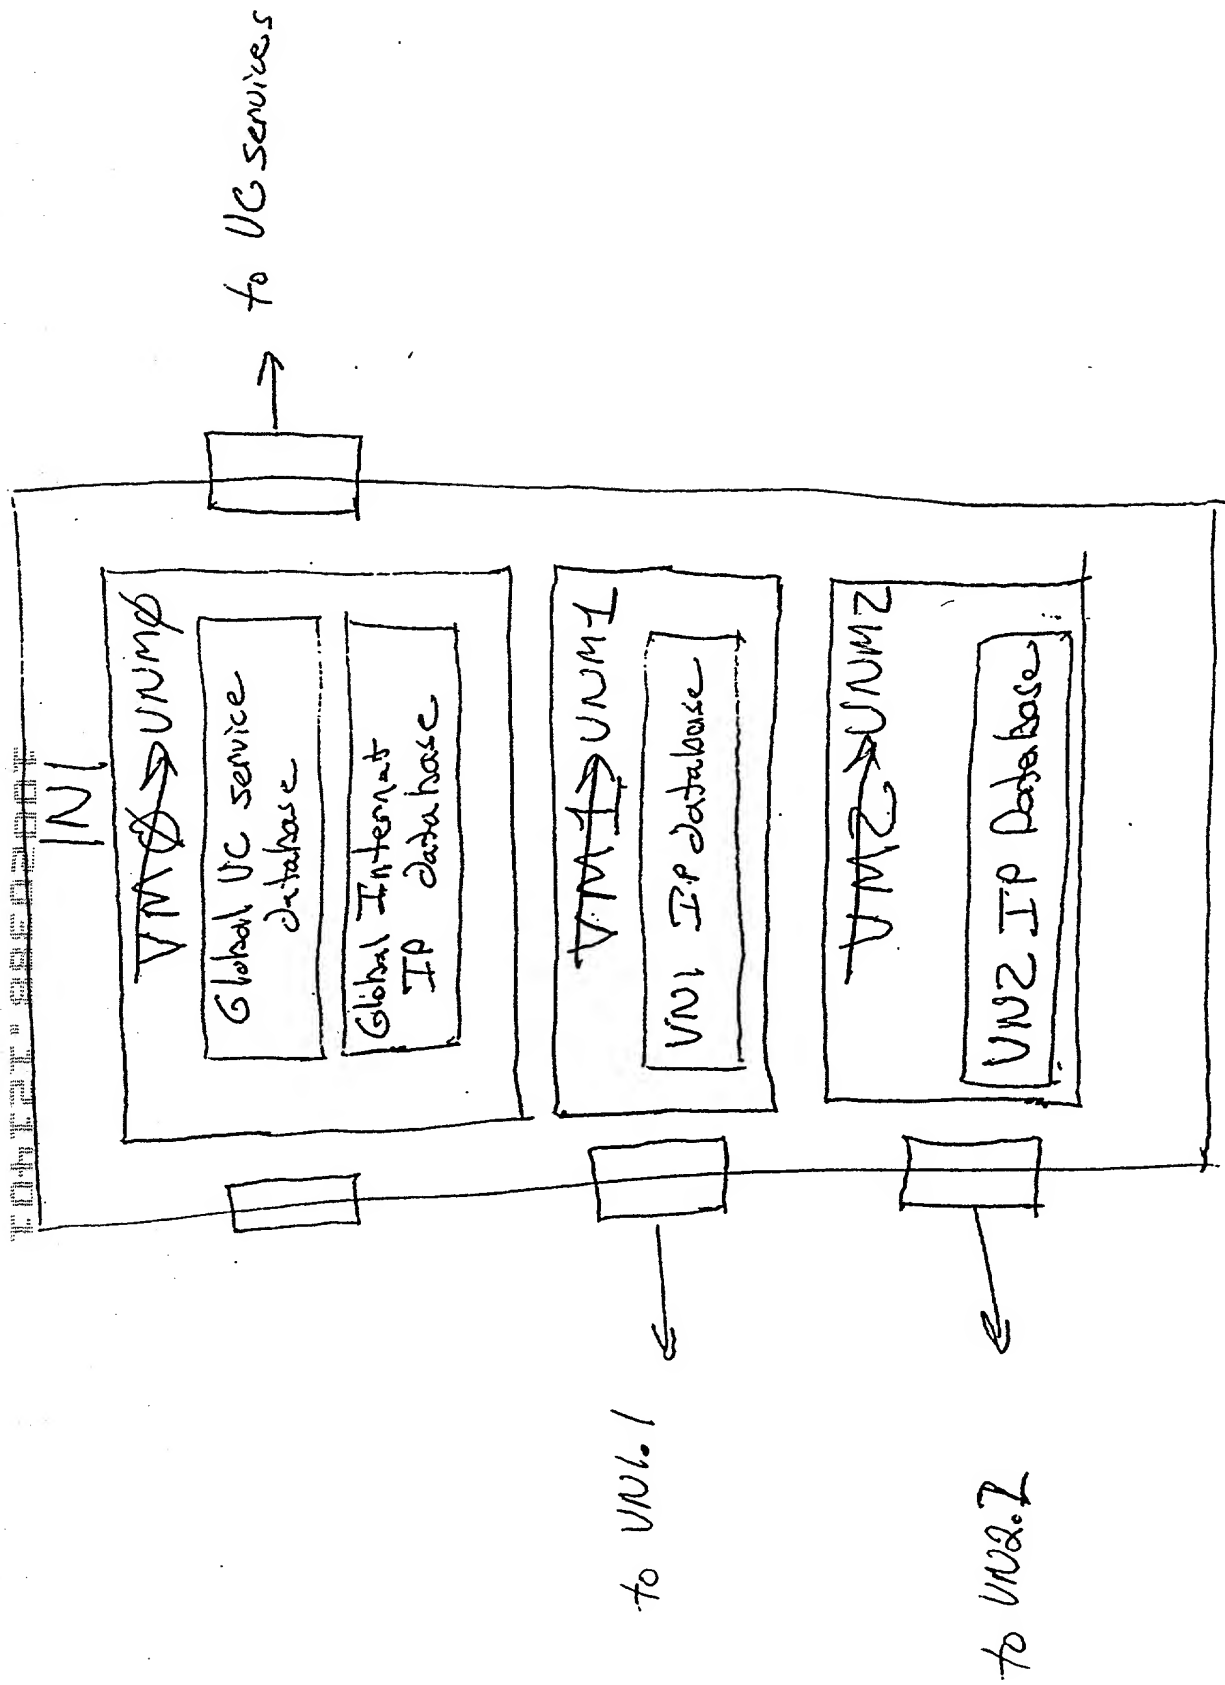 IN1
VMØ → VNMØ
Global VC service
database
Global Internat
IP database
VM1 → VNM1
VN1 IP database
VM2 → VNM2
VN2 IP Database
to VC services
to VN1.1
to VN2.1